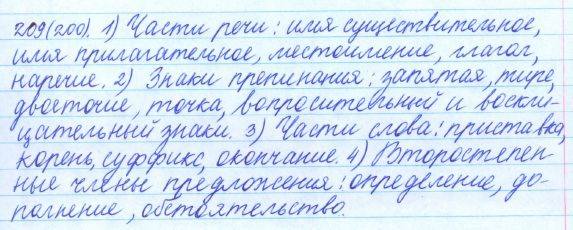 209(200). 1) Части речи: имя существительное,
имя прилагательное, местоимение, глагол,
наречие. 2) Знаки препинания: запятая, тире,
двоеточие, точка, вопросительный и воскли-
цательный знаки. 3) Части слова: приставка,
корень, суффикс, окончание. 4) Второстепен-
ные члены предложения: определение, до-
полнение, обстоятельство.